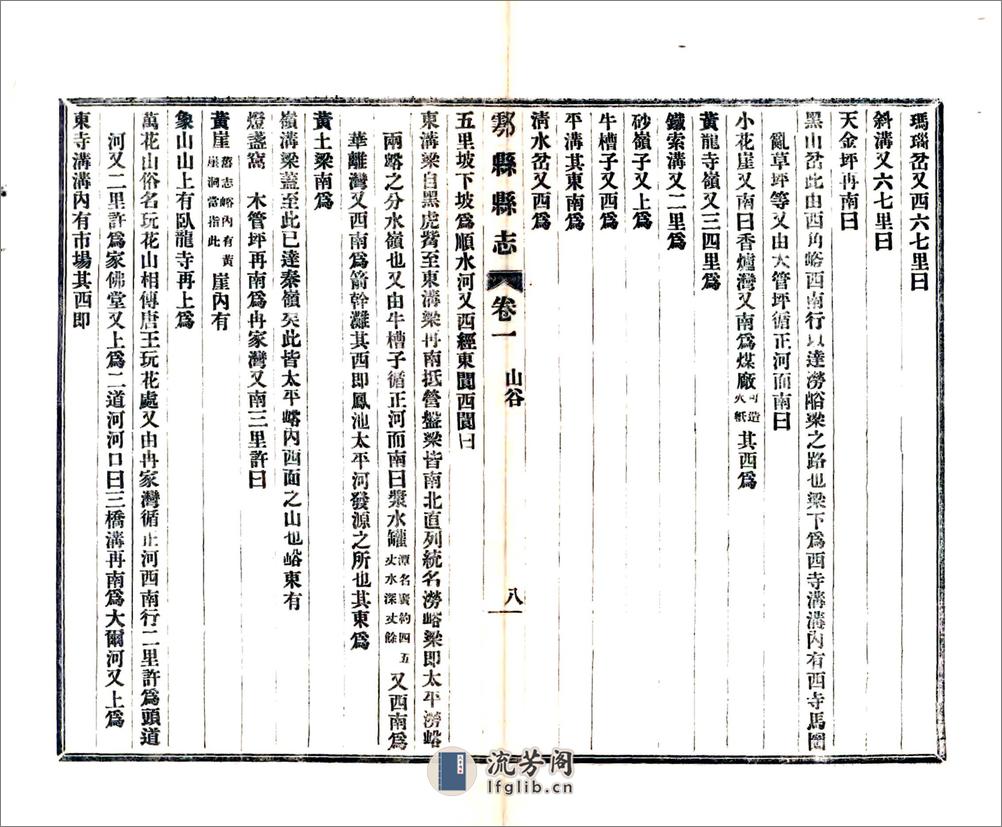 瑪瑙岔又西六七里曰
斜溝又六七里曰
天金坪再南曰
黑山岔此由西角峪西南行以達澇峪梁之路也梁下爲西寺溝溝內有西寺馬圈
亂草坪等又由大管坪循正河而南曰
小花崖又南曰香爐灣又南爲煤廠可造火紙其西爲
黃龍寺嶺又三四里爲
鐵索溝又二里爲
砂嶺子又上爲
牛槽子又西爲
平溝其東南爲
清水岔又西爲
鄠縣縣志 卷一 山谷 八
五里坡下坡爲順水河又西經東闖西闖曰
東溝梁自黑虎臂至東溝梁再南抵營盤梁皆南北直列統名澇峪梁即太平澇峪
兩峪之分水嶺也又由牛槽子循正河而南曰漿水罐潭名寬約四五丈水深丈餘又西南爲
華離灣又西南爲箭幹灘其西即鳳池太平河發源之所也其東爲
黃土梁南爲
嶺溝梁蓋至此已達秦嶺矣此皆太平峪內西面之山也峪東有
燈盞窩 木管坪再南爲冉家灣又南三里許曰
黃崖舊志峪內有黃崖洞當指此崖內有
象山山上有臥龍寺再上爲
萬花山俗名玩花山相傳唐王玩花處又由冉家灣循正河西南行二里許爲頭道
河又二里許爲家佛堂又上爲二道河河口曰三橋溝再南爲大爾河又上爲
東寺溝溝內有市場其西即
流芳阁
lfglib.cn